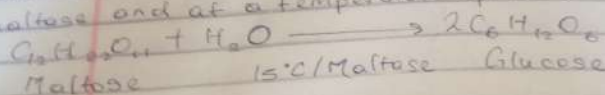 altase and at a tempe
C₁₂H₂₂O₁₁ + H₂O ⟶ 2C₆H₁₂O₆
Maltose 15°C/Maltase Glucose